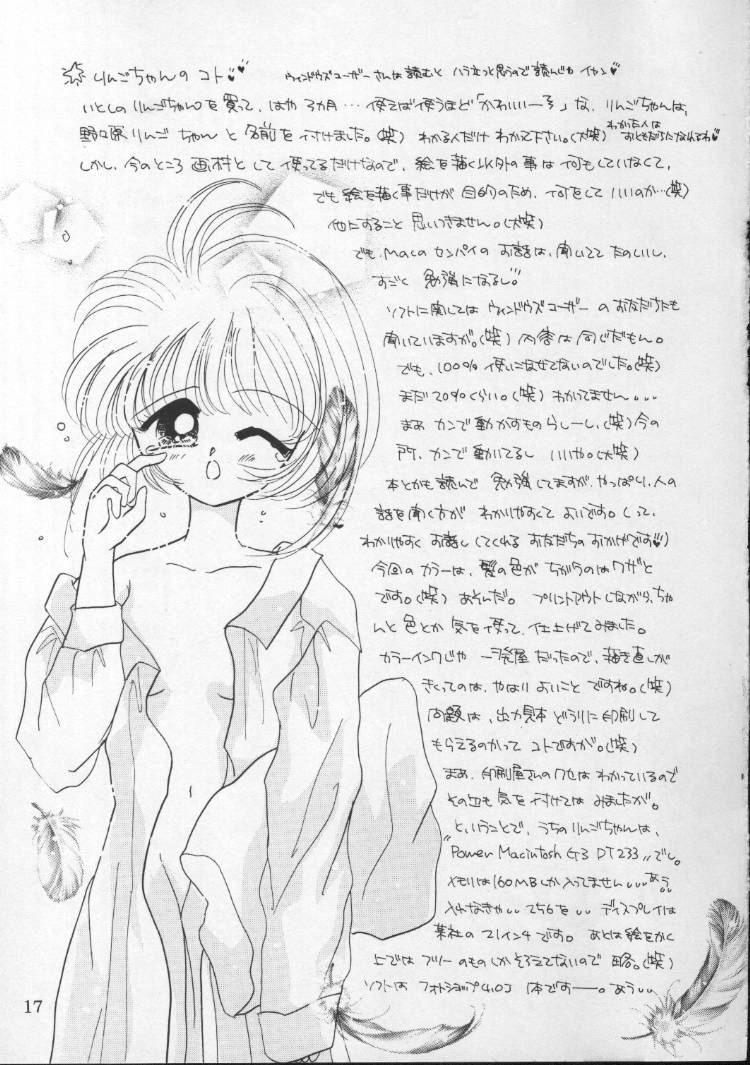 りんごちゃんのコト
ウィンドウズユーザーさんは読むと ハラ立つと思うので読んじゃ イヤン
いとしのりんごちゃんを買って、はや3カ月…使えば使うほど「かわいいーろ」な、りんごちゃんは、
野々原りんごちゃんと名前を付けました。(笑) わかる人だけわかって下さい。(大笑) わかった人は おともだちになれてるわ
しかし、今のところ画材として使ってるだけなので、絵を描く以外の事は何もしていなくて、
でも絵を描く事だけが目的のため、何をしていいのか…(笑)
他にすること思いつきません。(大笑)
でも、Macのセンパイのお話は、聞いてて たのしいし、
すごく勉強になるし。
ソフトに関しては ウィンドウズユーザーのお友だちたちも
聞いていますが。(笑) 内容は同じだもん。
でも、100%使いこなせてないのでした。(笑)
まだ20%くらい。(笑) わかってません...
まあ カンで動かすものらしーし、(笑)今の
所、カンで動いてるし いいや。(大笑)
本とかも読んで 勉強してますが、やっぱり、人の
話を聞く方が わかりやすくてよいです。(って、
わかりやすくお話ししてくれる お友だちのおかげです)
今回のカラーは、髪の色が ちがうのはワザと
です。(笑) あそんだ。プリントアウトしながら、ちゃ
んと色とか気を使って、仕上げてみました。
カラーインクじゃ 一発屋だったので、描き直しが
きくってのは、やはりよいことですね。(笑)
問題は、出力見本どうりに印刷して
もらえるのかってコトですが。(笑)
まあ、印刷屋さんのクセはわかっているので
その辺も気を付けてはみましたが。
ということで、うちのりんごちゃんは、
"Power Macintosh G3 DT233"でし。
メモリは160MBしか入ってません...あう。
入れなきゃ..256を.. ディスプレイは
某社の21インチです。あとは絵をかく
上ではフツーのものしかそろえてないので 略。(笑)
ソフトは フォトショップ4.0J 1本ですー。あう..
17